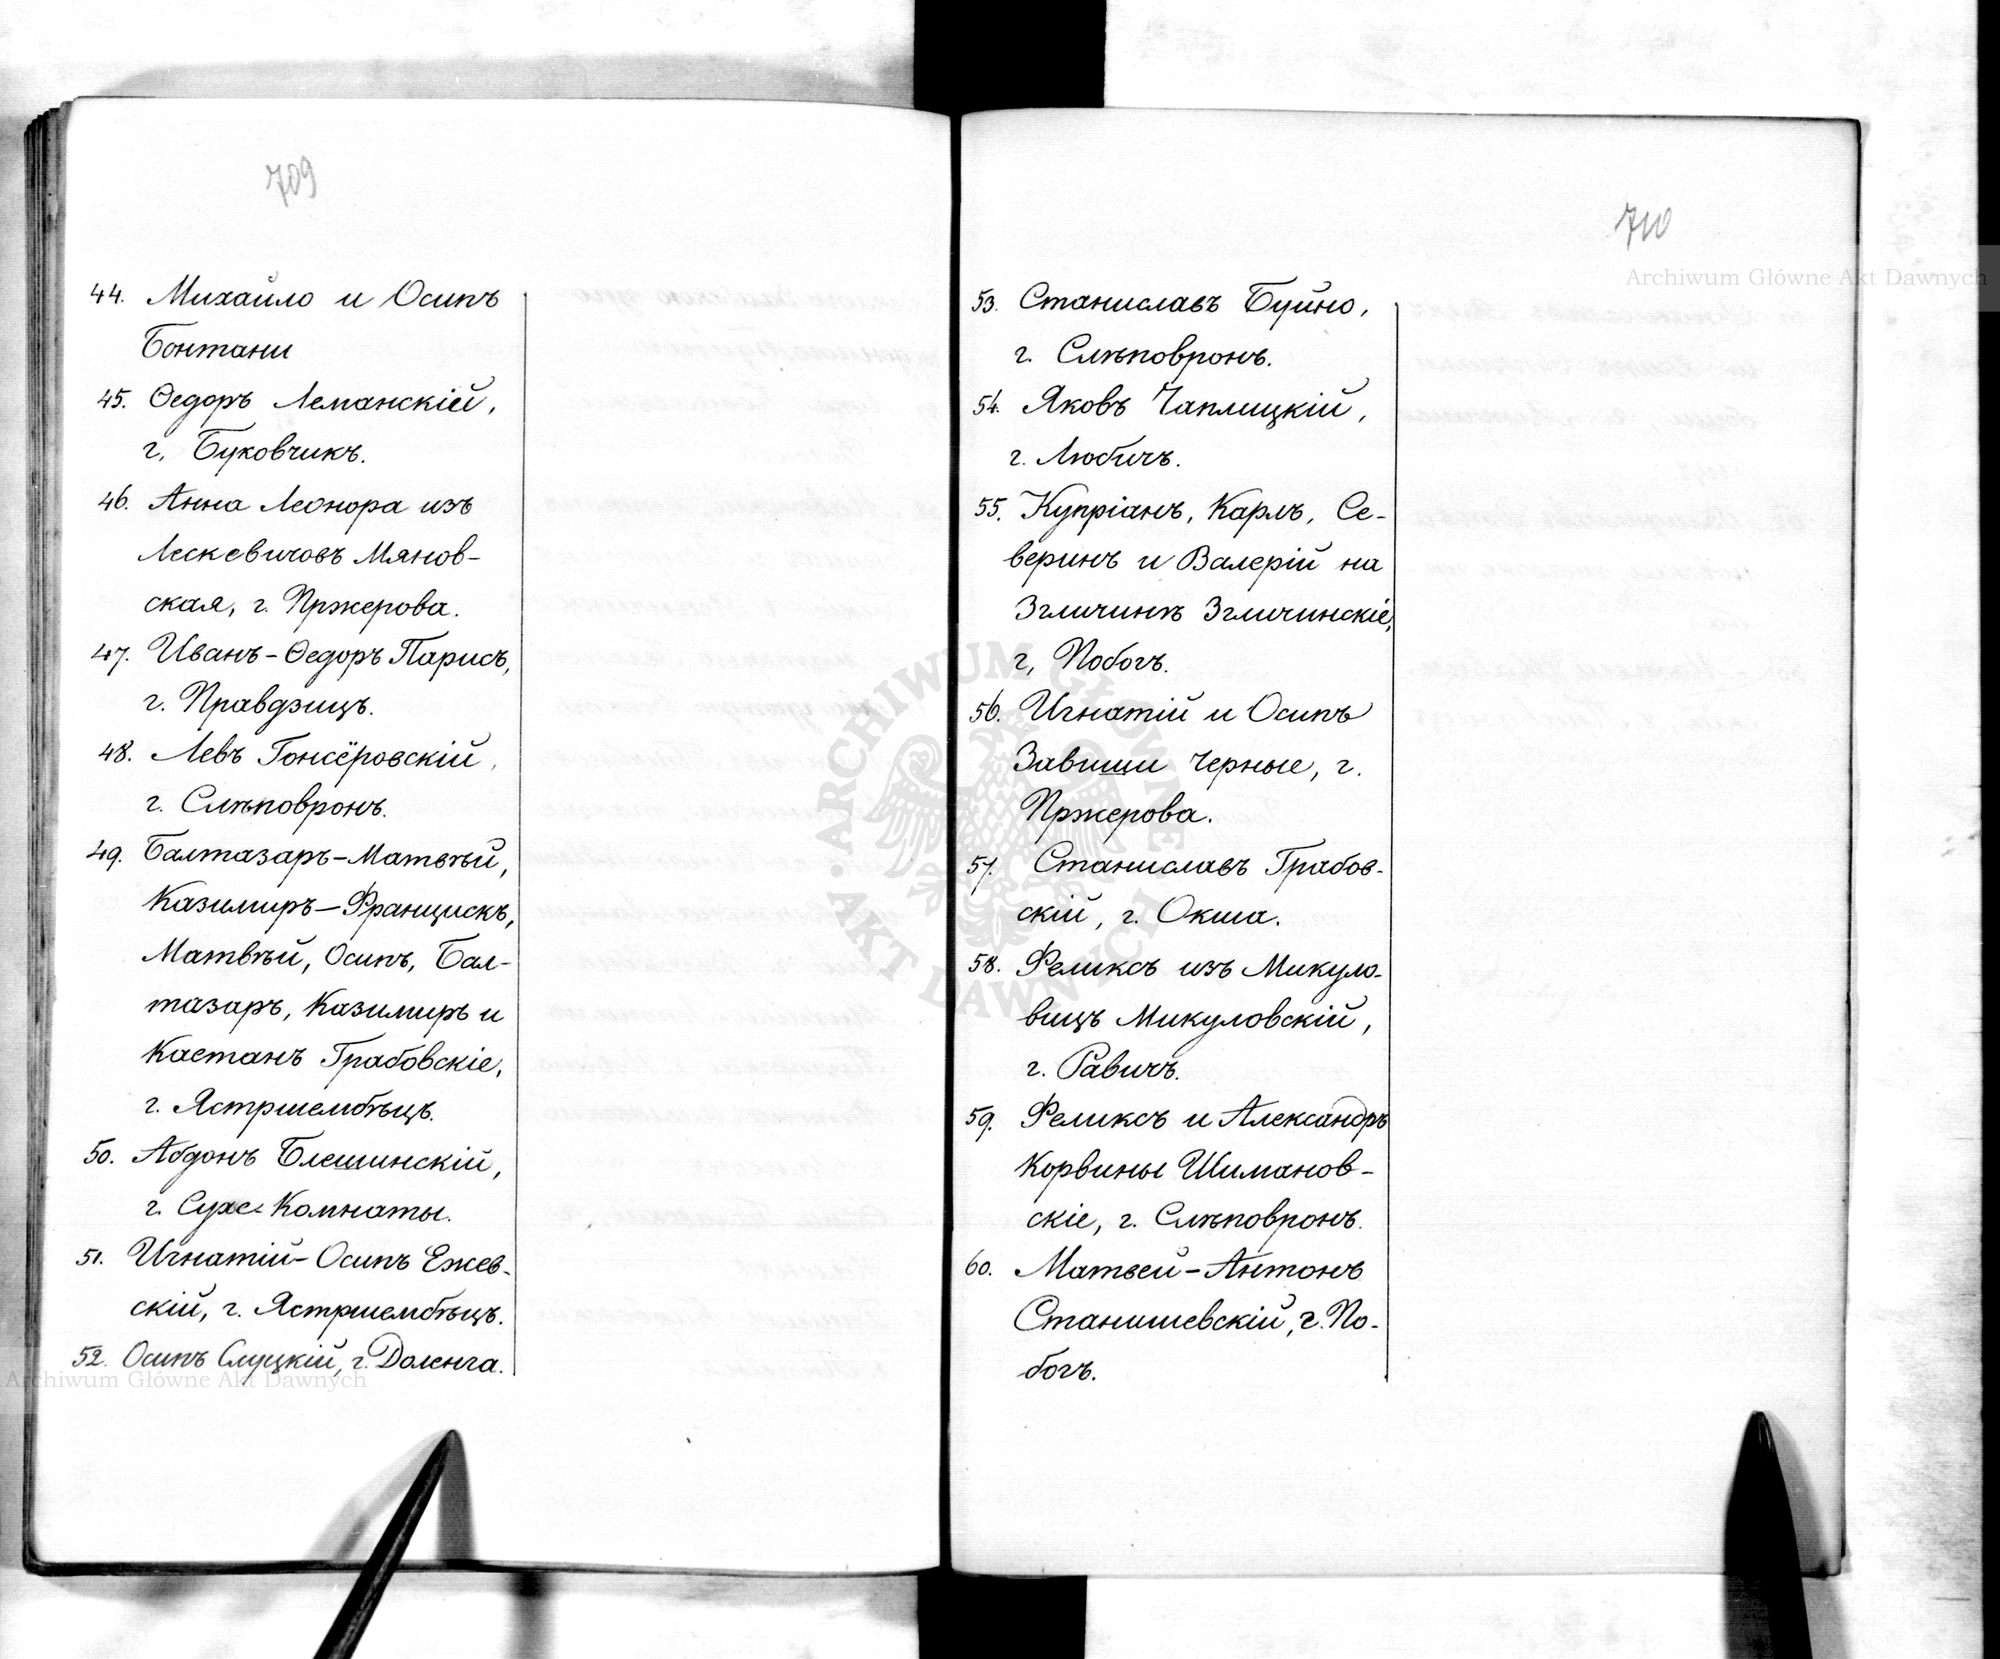 709
44. Михайло и Осипъ
Бонтани
45. Ѳедоръ Леманскій,
г. Буковчикъ.
46. Анна Леонора изъ
Лескевичовъ Мянов-
ская, г. Пржерова.
47. Иванъ-Ѳедоръ Парисъ,
г. Правдзицъ.
48. Левъ Гонсёровскій,
г. Слѣповронъ.
49. Балтазаръ-Матвѣй,
Казимиръ-Францискъ,
Матвѣй, Осипъ, Бал-
тазаръ, Казимиръ и
Каетанъ Грабовскіе,
г. Ястршембѣцъ.
50. Абдонъ Блешинскій,
г. Сухе-Комнаты.
51. Игнатій-Осипъ Ежев-
скій, г. Ястршембѣцъ.
52. Осипъ Слуцкій, г. Доленга.
710
53. Станиславъ Буйно,
г. Слѣповронъ.
54. Яковъ Чаплицкій,
г. Любичъ.
55. Купріанъ, Карлъ, Се-
веринъ и Валерій на
Згличинѣ Згличинскіе,
г. Побогъ.
56. Игнатій и Осипъ
Завиши Черные, г.
Пржерова.
57. Станиславъ Грабов-
скій, г. Окша.
58. Феликсъ изъ Микуло-
вицъ Микуловскій,
г. Равичъ.
59. Феликсъ и Александръ
Корвины Шиманов-
скіе, г. Слѣповронъ.
60. Матвей-Антонъ
Станишевскій, г. По-
богъ.
Archiwum Główne Akt Dawnych
Archiwum Główne Akt Dawnych
· ARCHIWUM GŁÓWNE · AKT DAWNYCH